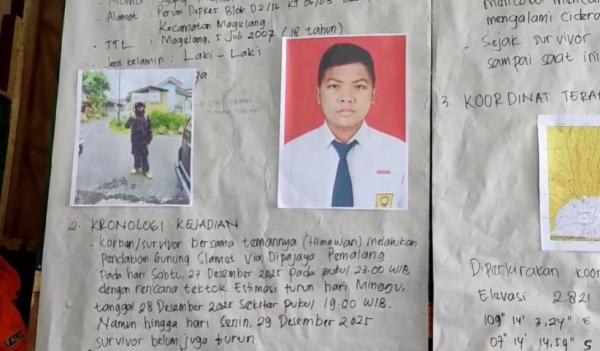 Alamat : Perum Depkes Blok D2/16
Kecamatan Magelang
- TTL : Magelang, 5 Juli 2007 (18 tahun)
- Jenis kelamin : Laki - Laki
2. KRONOLOGI KEJADIAN
- Korban/survivor bersama temannya (Himawan) melakukan
Pendakian Gunung Slamet via Dipajaya Pemalang
Pada hari Sabtu, 27 Desember 2025 pada pukul 23.00 WIB
dengan rencana tektok. Estimasi turun hari Minggu,
tanggal 28 Desember 2025 sekitar pukul 19.00 WIB.
Namun hingga hari Senin, 29 Desember 2025
survivor belum juga turun
mengalami cidera
- Sejak survivor
sampai saat ini
3. KOORDINAT
Diperkirakan
Elevasi : 2.821
109° 14' 3,24" E
07° 14' 14,59" S